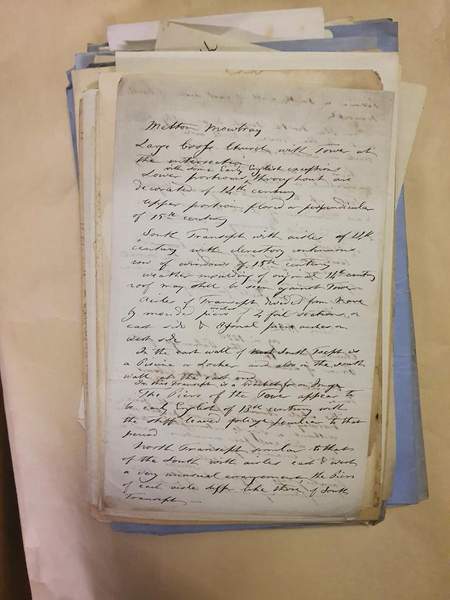 Melton Mowbray
Large Cross Church with Tower at
the intersection
with some Early English exceptions
Lower portions throughout are
decorated of 14th century
Upper portion florid or perpendicular
of 15th century
South Transept with aisles of 14th
century with clerestory containing
row of windows of 15th century
weather moulding of original 14th century
roof may still be seen against Tower
Aisles of Transept divided from Nave
by piers of 4 foil sections on
east side & piers arches on
west side
In the east wall of South Transept is a
Piscina or Locker and also in the south
wall at the east end
In this Transept is a bracket for an Image
The Piers of the Tower appear to
be early English of 13th century with
the stiff leaved foliage peculiar to that
period
North Transept similar to that
of the South with aisles east & west
a very unusual arrangement the Piers
of each aisle differ like those of South
Transept